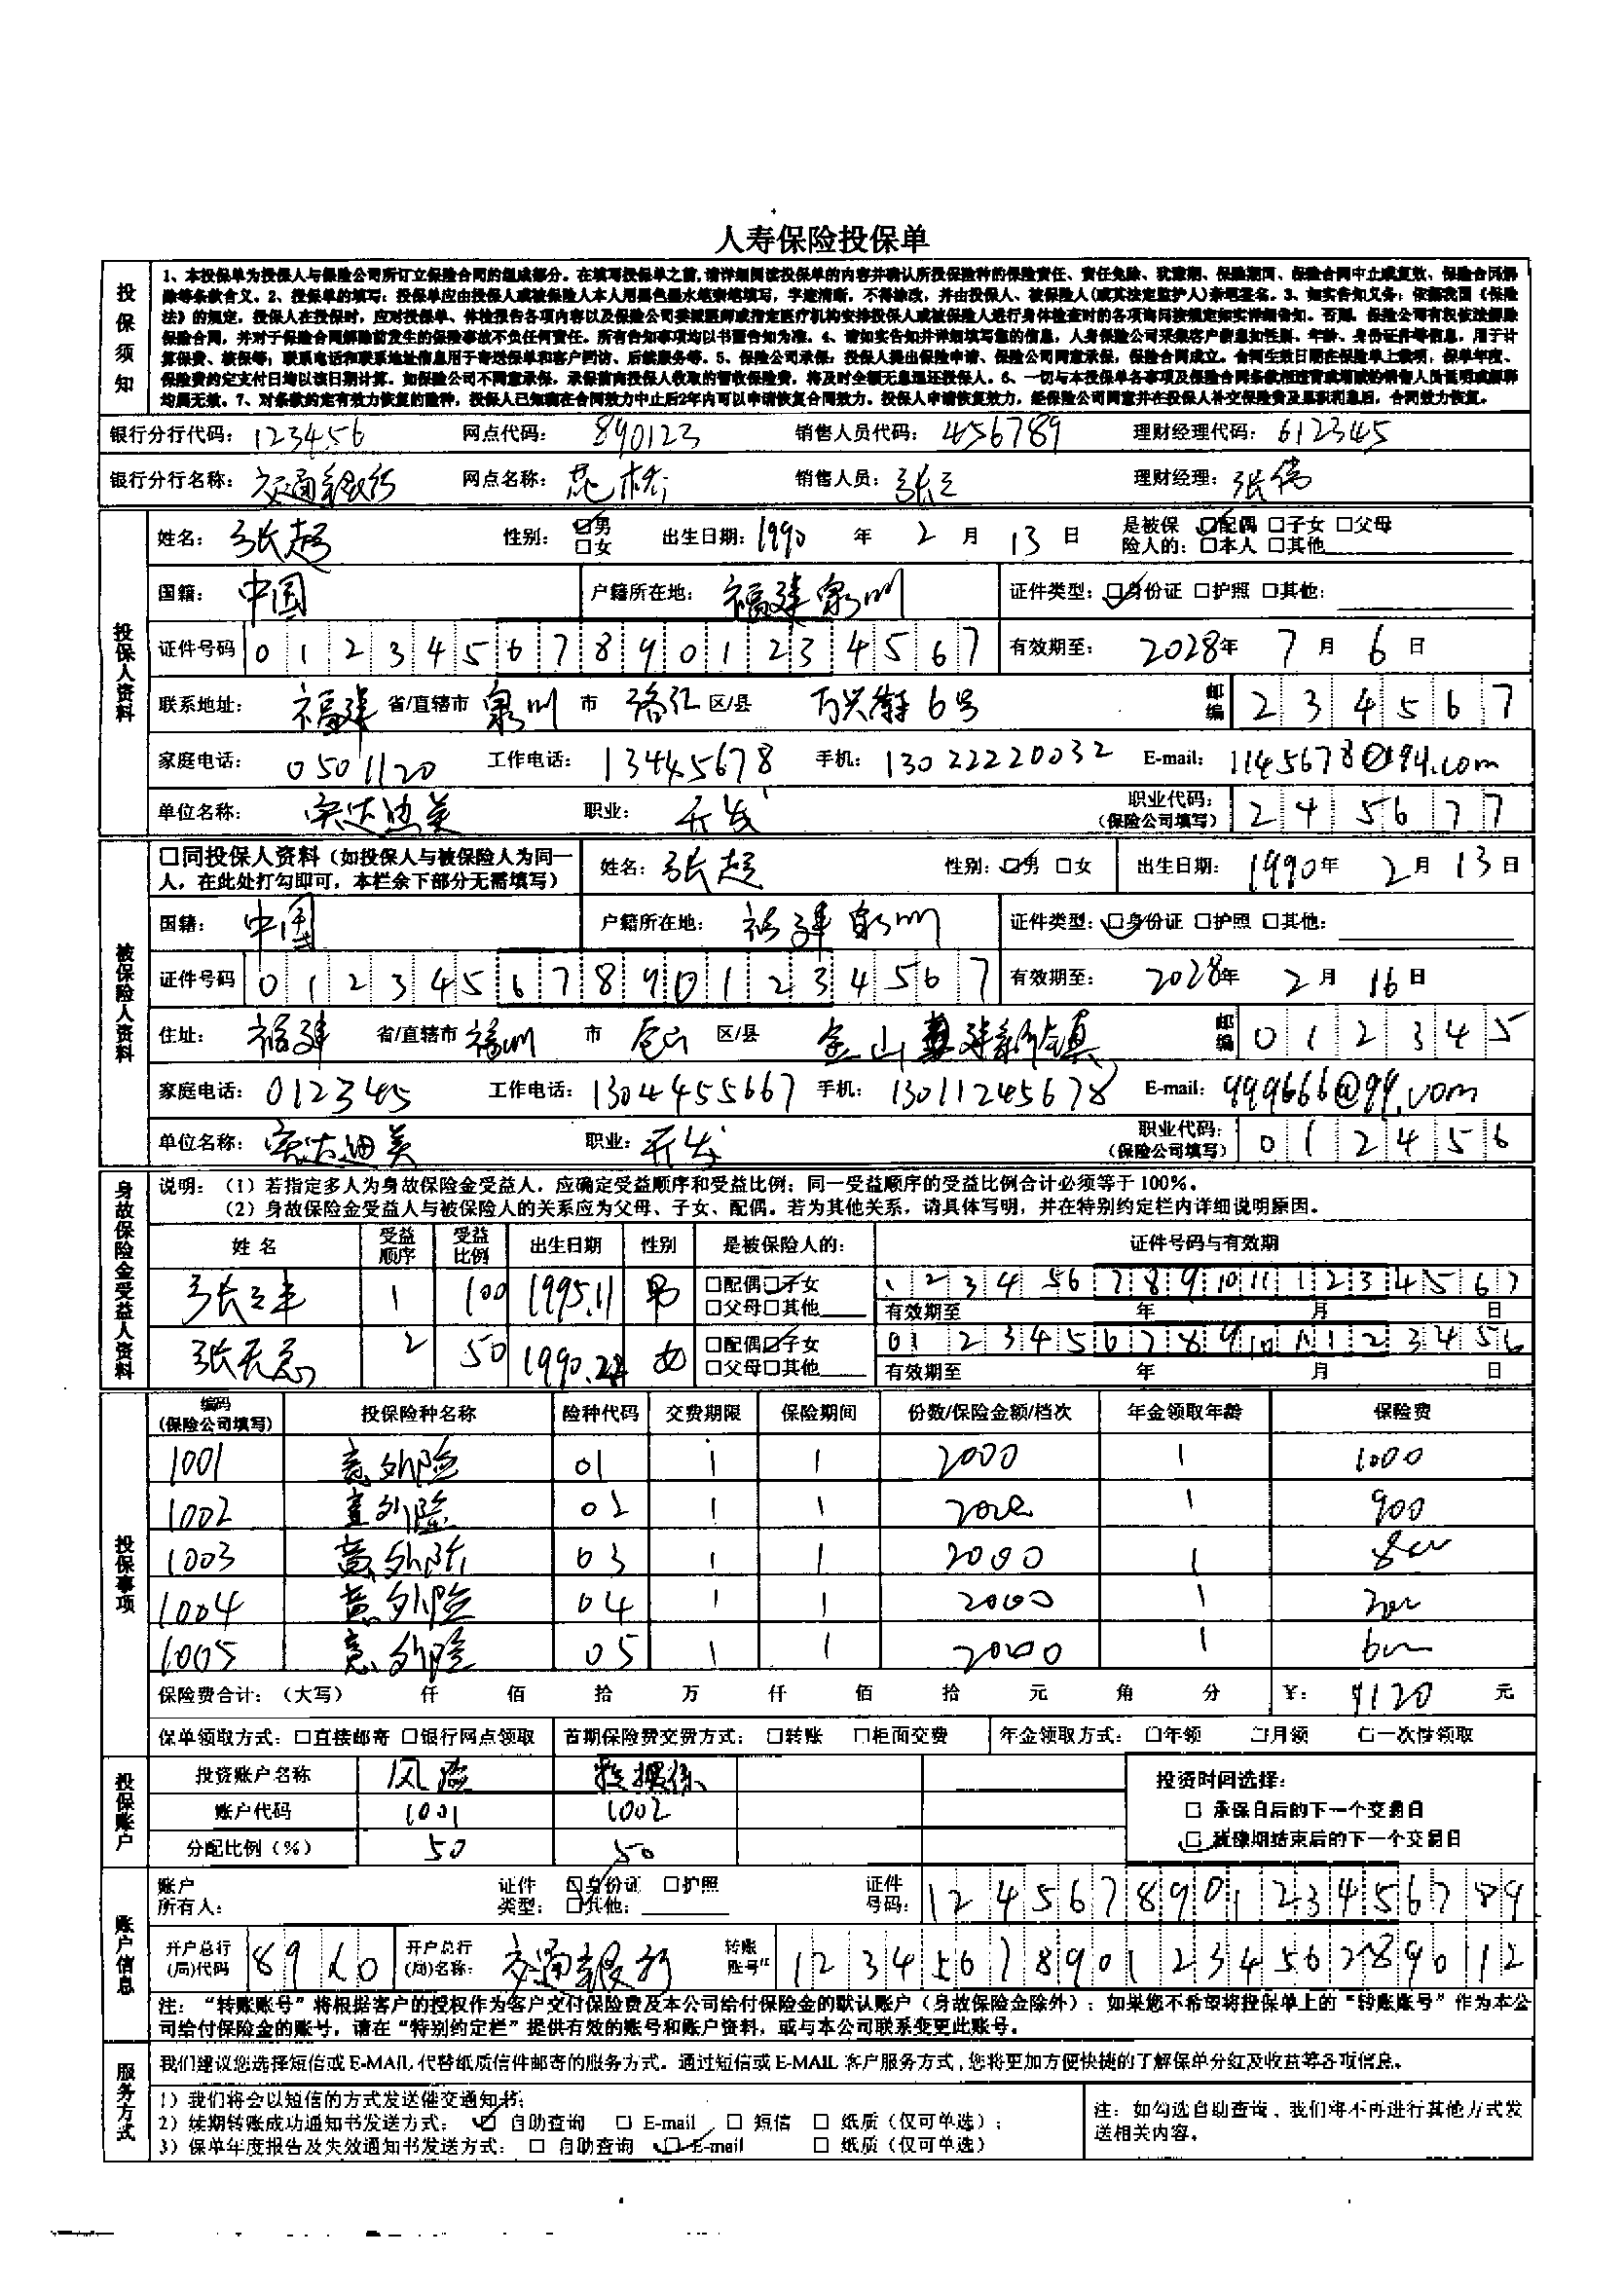 人寿保险投保单
投保须知
1、本投保单为投保人与保险公司所订立保险合同的组成部分。在填写投保单之前,请详细阅读投保单的内容并确认所投保险种的保险责任、责任免除、犹豫期、保险期间、保险合同中止或复效、保险合同解
除等条款含义。2、投保单的填写：投保单应由投保人或被保险人本人用黑色墨水笔亲笔填写，字迹清晰，不得涂改，并由投保人、被保险人(或其法定监护人)亲笔签名。3、如实告知义务：依据我国《保险
法》的规定，投保人在投保时，应对投保单、体检报告各项内容以及保险公司委派医师或指定医疗机构安排投保人或被保险人进行身体检查时的各项询问按规定如实详细告知。否则，保险公司有权依法解除
保险合同，并对于保险合同解除前发生的保险事故不负任何责任。所有告知事项均以书面告知为准。4、请如实告知并详细填写您的信息，人身保险公司采集客户信息如性别、年龄、身份证件等信息，用于计
算保费、核保等；联系电话和联系地址信息用于寄送保单和客户回访、后续服务等。5、保险公司承保：投保人提出保险申请、保险公司同意承保，保险合同成立。合同生效日期在保险单上载明，保单年度、
保险费约定支付日均以该日期计算。如保险公司不同意承保，承保前向投保人收取的暂收保险费，将及时全额无息退还投保人。6、一切与本投保单各事项及保险合同条款相违背或增减的销售人员说明或解释
均属无效。7、对条款约定有效力恢复的险种，投保人已知晓在合同效力中止后2年内可以申请恢复合同效力。投保人申请恢复效力，经保险公司同意并在投保人补交保险费及累积利息后，合同效力恢复。
银行分行代码：123456 网点代码：890123 销售人员代码：456789 理财经理代码：612345
银行分行名称：交通银行 网点名称： 销售人员：张三 理财经理：张伟
投保人资料
姓名：张超 性别：☑男 □女 出生日期：1990 年 2 月 13 日 是被保险人的：☑配偶 □子女 □父母 □本人 □其他
国籍：中国 户籍所在地：福建泉州 证件类型：☑身份证 □护照 □其他：
证件号码 0 1 2 3 4 5 6 7 8 9 0 1 2 3 4 5 6 7 有效期至：2028年 7 月 6 日
联系地址：福建 省/直辖市 泉州 市 洛江 区/县 万兴街 6号 邮编 2 3 4 5 6 7
家庭电话：0501120 工作电话：13445678 手机：13022220032 E-mail：
单位名称：荣达迪美 职业：开发 职业代码：（保险公司填写） 2 4 5 6 7 7
被保险人资料
□同投保人资料（如投保人与被保险人为同一人，在此处打勾即可，本栏余下部分无需填写） 姓名：张超 性别：☑男 □女 出生日期：1990年 2 月 13 日
国籍：中国 户籍所在地：福建泉州 证件类型：☑身份证 □护照 □其他：
证件号码 0 1 2 3 4 5 6 7 8 9 0 1 2 3 4 5 6 7 有效期至：2028年 2 月 16 日
住址：福建 省/直辖市 福州 市 仓山 区/县 金山 邮编 0 1 2 3 4 5
家庭电话：012345 工作电话：1304455667 手机：13011245678 E-mail：999666@99.com
单位名称：荣达迪美 职业：开发 职业代码：（保险公司填写） 0 1 2 4 5 6
身故保险金受益人资料
说明：（1）若指定多人为身故保险金受益人，应确定受益顺序和受益比例；同一受益顺序的受益比例合计必须等于100%。
（2）身故保险金受益人与被保险人的关系应为父母、子女、配偶。若为其他关系，请具体写明，并在特别约定栏内详细说明原因。
姓名 受益顺序 受益比例 出生日期 性别 是被保险人的： 证件号码与有效期
张三丰 1 100 1995.11 男 □配偶☑子女 □父母□其他 1 2 3 4 5 6 7 8 9 10 11 1 2 3 4 5 6 7
有效期至 年 月 日
张无忌 2 50 女 □配偶☑子女 □父母□其他 0 1 2 3 4 5 6 7 8 9 10 11 1 2 3 4 5 6
有效期至 年 月 日
投保事项
编码（保险公司填写） 投保险种名称 险种代码 交费期限 保险期间 份数/保险金额/档次 年金领取年龄 保险费
1001 意外险 01 1 1 2000 1 1000
1002 意外险 02 1 1 2000 1 900
1003 意外险 03 1 1 2000 1 800
1004 意外险 04 1 1 2000 1
1005 意外险 05 1 1 2000 1 600
保险费合计：（大写） 仟 佰 拾 万 仟 佰 拾 元 角 分 ¥： 9120 元
保单领取方式：□直接邮寄 □银行网点领取 首期保险费交费方式：□转账 □柜面交费 年金领取方式：□年领 □月领 □一次性领取
投保账户
投资账户名称 风险
账户代码 1001 1002
分配比例（%） 50 50
投资时间选择：
□ 承保日后的下一个交易日
☑ 犹豫期结束后的下一个交易日
账户信息
账户所有人： 证件类型：☑身份证 □护照 □其他： 证件号码： 1 2 4 5 6 7 8 9 0 1 2 3 4 5 6 7 8 9
开户总行(局)代码 开户总行(局)名称：交通银行 转账账号： 1 2 3 4 5 6 7 8 9 0 1 2 3 4 5 6 7 8 9 0 1 2
注：“转账账号”将根据客户的授权作为客户交付保险费及本公司给付保险金的默认账户（身故保险金除外）；如果您不希望将投保单上的“转账账号”作为本公
司给付保险金的账号，请在“特别约定栏”提供有效的账号和账户资料，或与本公司联系变更此账号。
服务方式
我们建议您选择短信或 E-MAIL 代替纸质信件邮寄的服务方式。通过短信或 E-MAIL 客户服务方式，您将更加方便快捷的了解保单分红及收益等各项信息。
1）我们将会以短信的方式发送催交通知书；
2）续期转账成功通知书发送方式：☑ 自助查询 □ E-mail □ 短信 □ 纸质（仅可单选）；
3）保单年度报告及失效通知书发送方式：□ 自助查询 ☑ E-mail □ 纸质（仅可单选）
注：如勾选自助查询，我们将不再进行其他方式发
送相关内容。